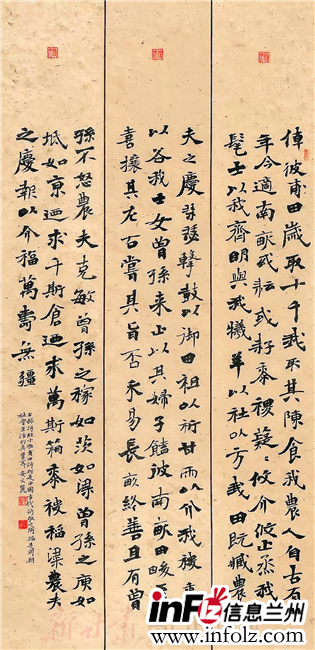 倬彼甫田歲取十千我取其陳食我農人自古有
年今適南畝或耘或耔黍稷薿薿攸介攸止烝我
髦士以我齊明與我犧羊以社以方我田既臧農
夫之慶琴瑟擊鼓以御田祖以祈甘雨以介我稷黍
以谷我士女曾孫来止以其婦子饁彼南畝田畯至
喜攘其左右嘗其旨否禾易長畝終善且有曾
孫不怒農夫克敏曾孫之稼如茨如梁曾孫之庾如
坻如京迺求千斯倉迺求萬斯箱黍稷稻粱農夫
之慶報以介福萬壽無疆
infoLZ 信息兰州
www.infolz.com